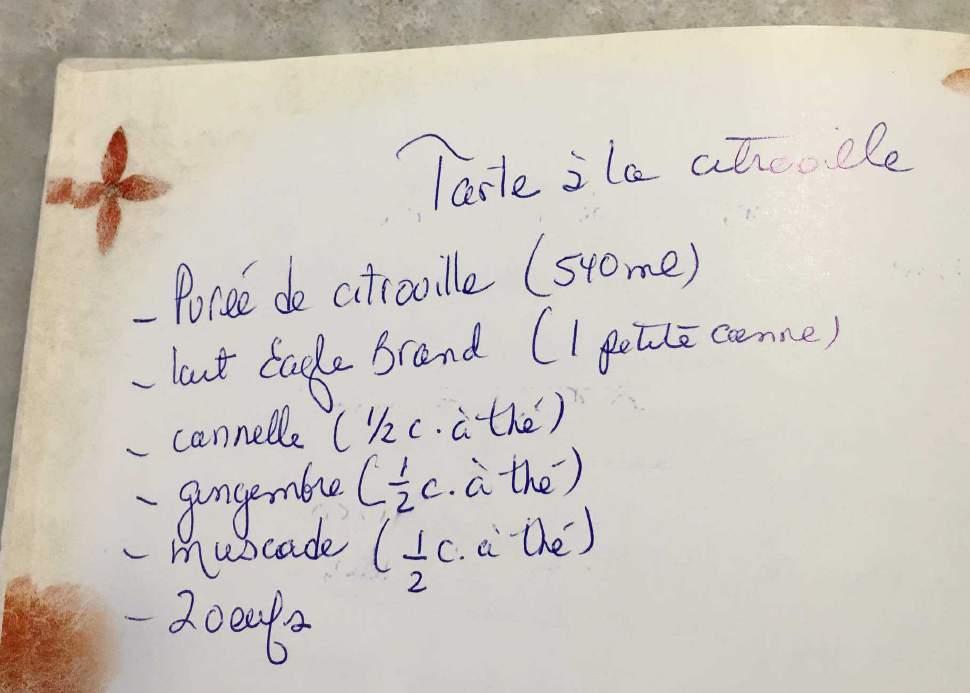 Tarte à la citrouille
- Purée de citrouille (540 ml)
- lait Eagle Brand (1 petite canne)
- cannelle (1/2 c. à thé)
- gingembre (1/2 c. à thé)
- muscade (1/2 c. à thé)
- 2 oeufs